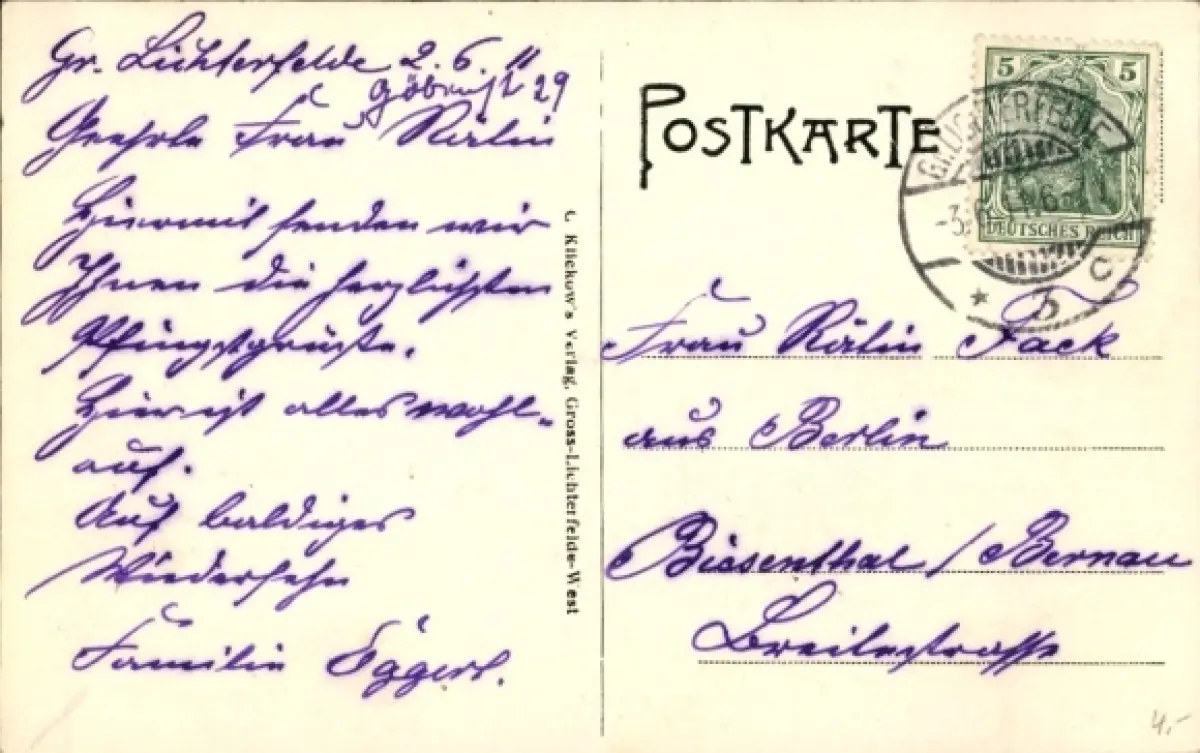 Gr. Lichterfelde 2. 6. 11
Göbenst 29
Geehrte Frau Rätin
Hiermit senden wir
Ihnen die herzlichsten
Pfingstgrüße.
Hier ist alles wohl-
auf.
Auf baldiges
Wiedersehn
Familie Eggert.
C. Klickow's Verlag, Gross-Lichterfelde-West
POSTKARTE
5 5
DEUTSCHES REICH
GR. LICHTERFELDE
* 3 c
Frau Rätin Fack
aus Berlin
Biesenthal / Bernau
Breitestrasse
4.-